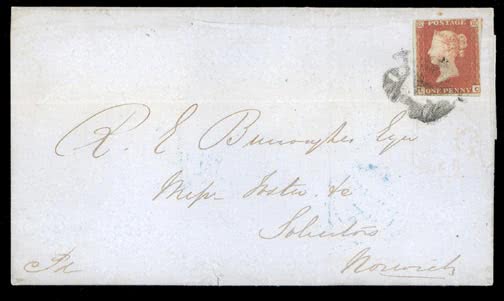 POSTAGE
ONE PENNY
R. E. Burroughes Esqr
Messrs Foster &c
Solicitors
Norwich
Pd